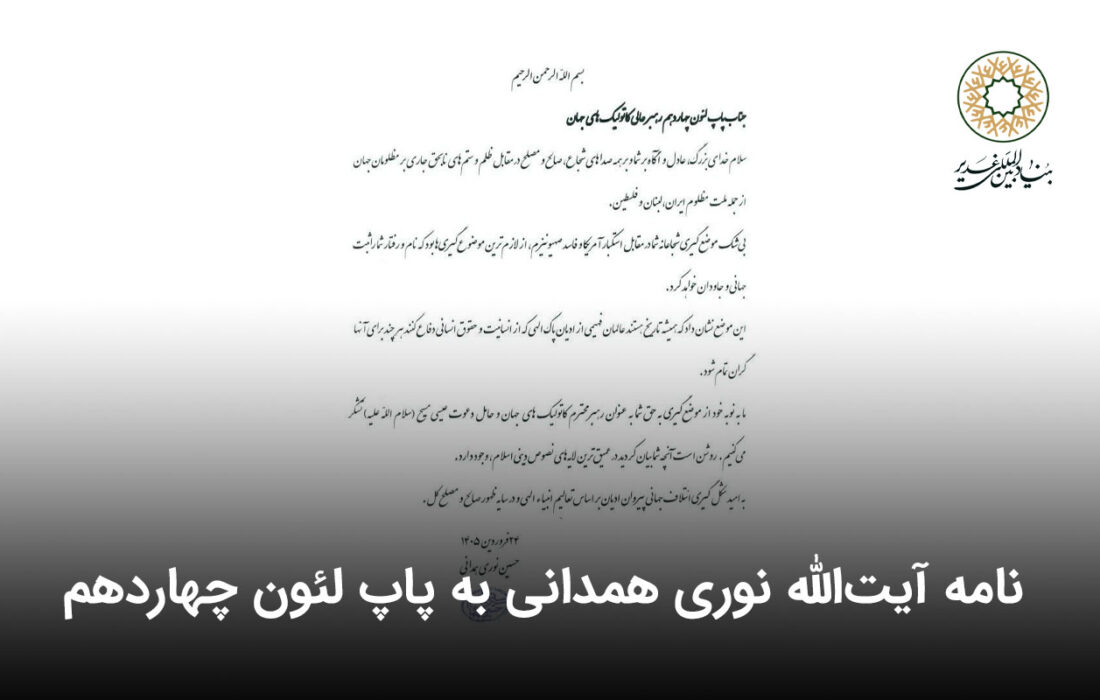 بسم الله الرحمن الرحیم
جناب پاپ لئون چهاردهم رهبر عالی کاتولیک های جهان
سلام خدای بزرگ، عادل و آگاه بر شما و بر همه صداهای شجاع، صالح و مصلح در مقابل ظلم و ستم های نابحق جاری بر مظلومان جهان
از جمله ملت مظلوم ایران، لبنان و فلسطین.
بی شک موضع گیری شجاعانه شما در مقابل استکبار آمریکا و فاسد صهیونیزم، از لازم ترین موضوع گیری ها بود که نام و رفتار شما را ثبت
جهانی و جاودان خواهد کرد.
این موضع نشان داد که همیشه تاریخ هستند عالمان فهیمی از ادیان پاک الهی که از انسانیت و حقوق انسانی دفاع کنند هر چند برای آنها
گران تمام شود.
ما به نوبه خود از موضع گیری به حق شما به عنوان رهبر محترم کاتولیک های جهان و حامل دعوت عیسی مسیح (سلام الله علیه) تشکر
می کنیم. روشن است آنچه شما بیان کردید در عمیق ترین لایه های نصوص دینی اسلام، وجود دارد.
به امید شکل گیری ائتلاف جهانی پیروان ادیان بر اساس تعالیم انبیاء الهی و در سایه ظهور صالح و مصلح کل.
۲۴ فروردین ۱۴۰۵
حسین نوری همدانی
بنیاد بین المللی غدیر
نامه آیت‌الله نوری همدانی به پاپ لئون چهاردهم